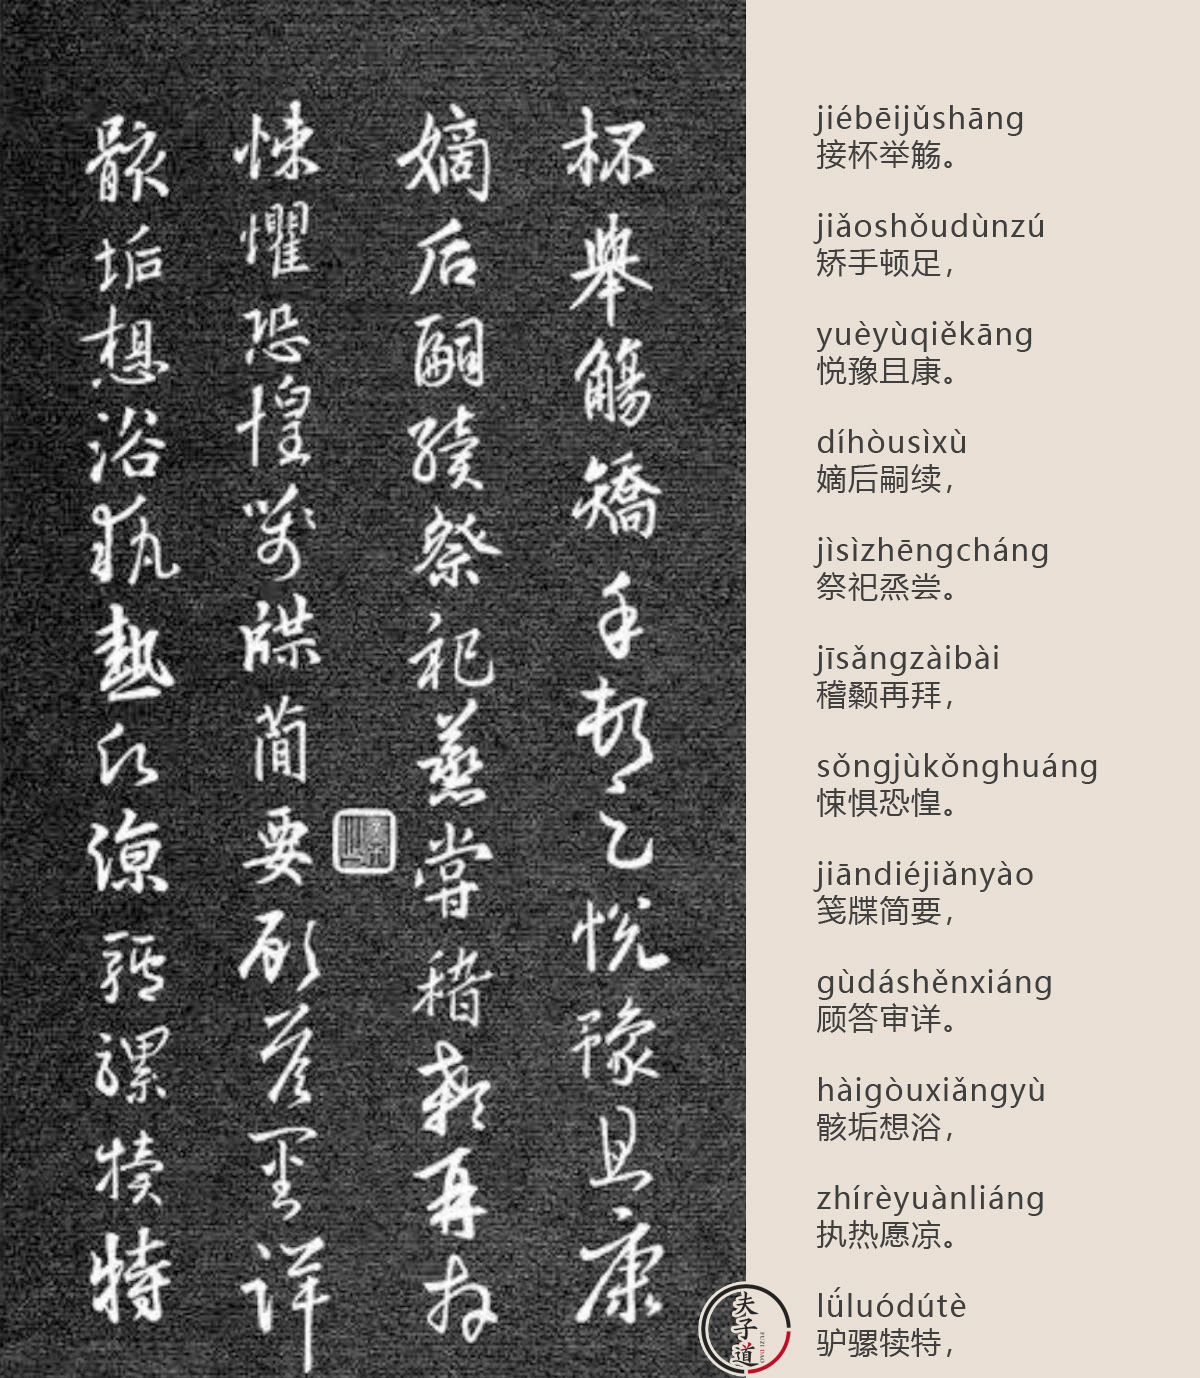 杯舉觴矯手頓足悅豫且康
嫡后嗣續祭祀蒸嘗稽顙再拜
悚懼恐惶箋牒簡要顧答審詳
骸垢想浴執熱願涼驢騾犢特
jiébēijǔshāng
接杯举觞。
jiǎoshǒudùnzú
矫手顿足，
yuèyùqiěkāng
悦豫且康。
díhòusìxù
嫡后嗣续，
jìsìzhēngcháng
祭祀烝尝。
jīsǎngzàibài
稽颡再拜，
sǒngjùkǒnghuáng
悚惧恐惶。
jiāndiéjiǎnyào
笺牒简要，
gùdáshěnxiáng
顾答审详。
hàigòuxiǎngyù
骸垢想浴，
zhírèyuànliáng
执热愿凉。
lǘluódútè
驴骡犊特，
夫子道
FUZI DAO